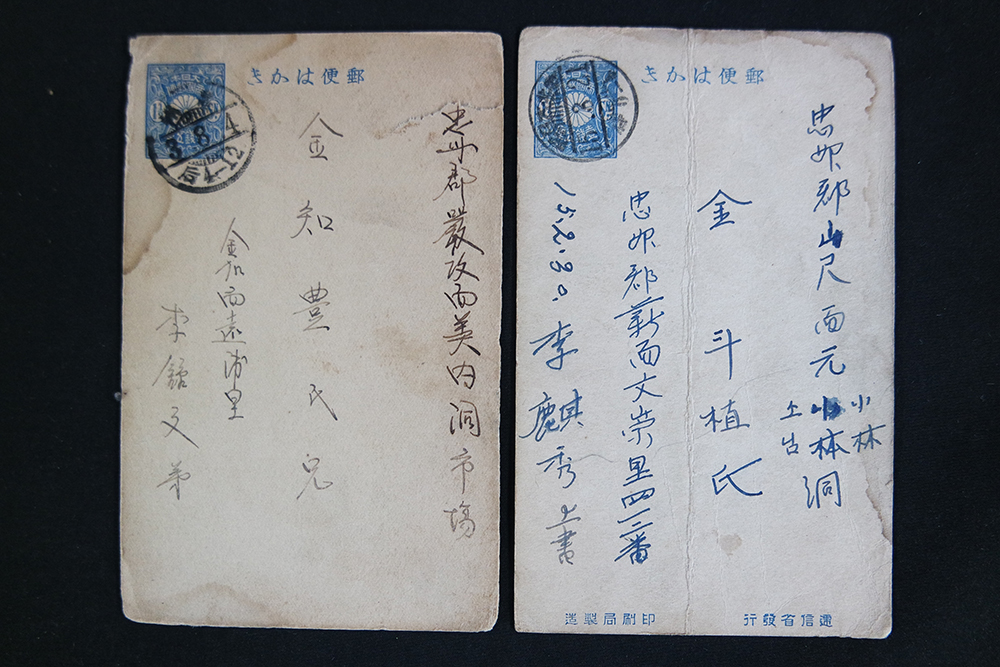 郵便はかき
3.8.4
忠州郡嚴政面美内洞市場
金知豊氏兄
金加面遠浦里
李鎔文弟
郵便はかき
忠州郡山尺面元小林洞
小林
金斗植氏
忠州郡薪面文崇里四一二番
李麒秀上書
遞信省發行
印刷局製造